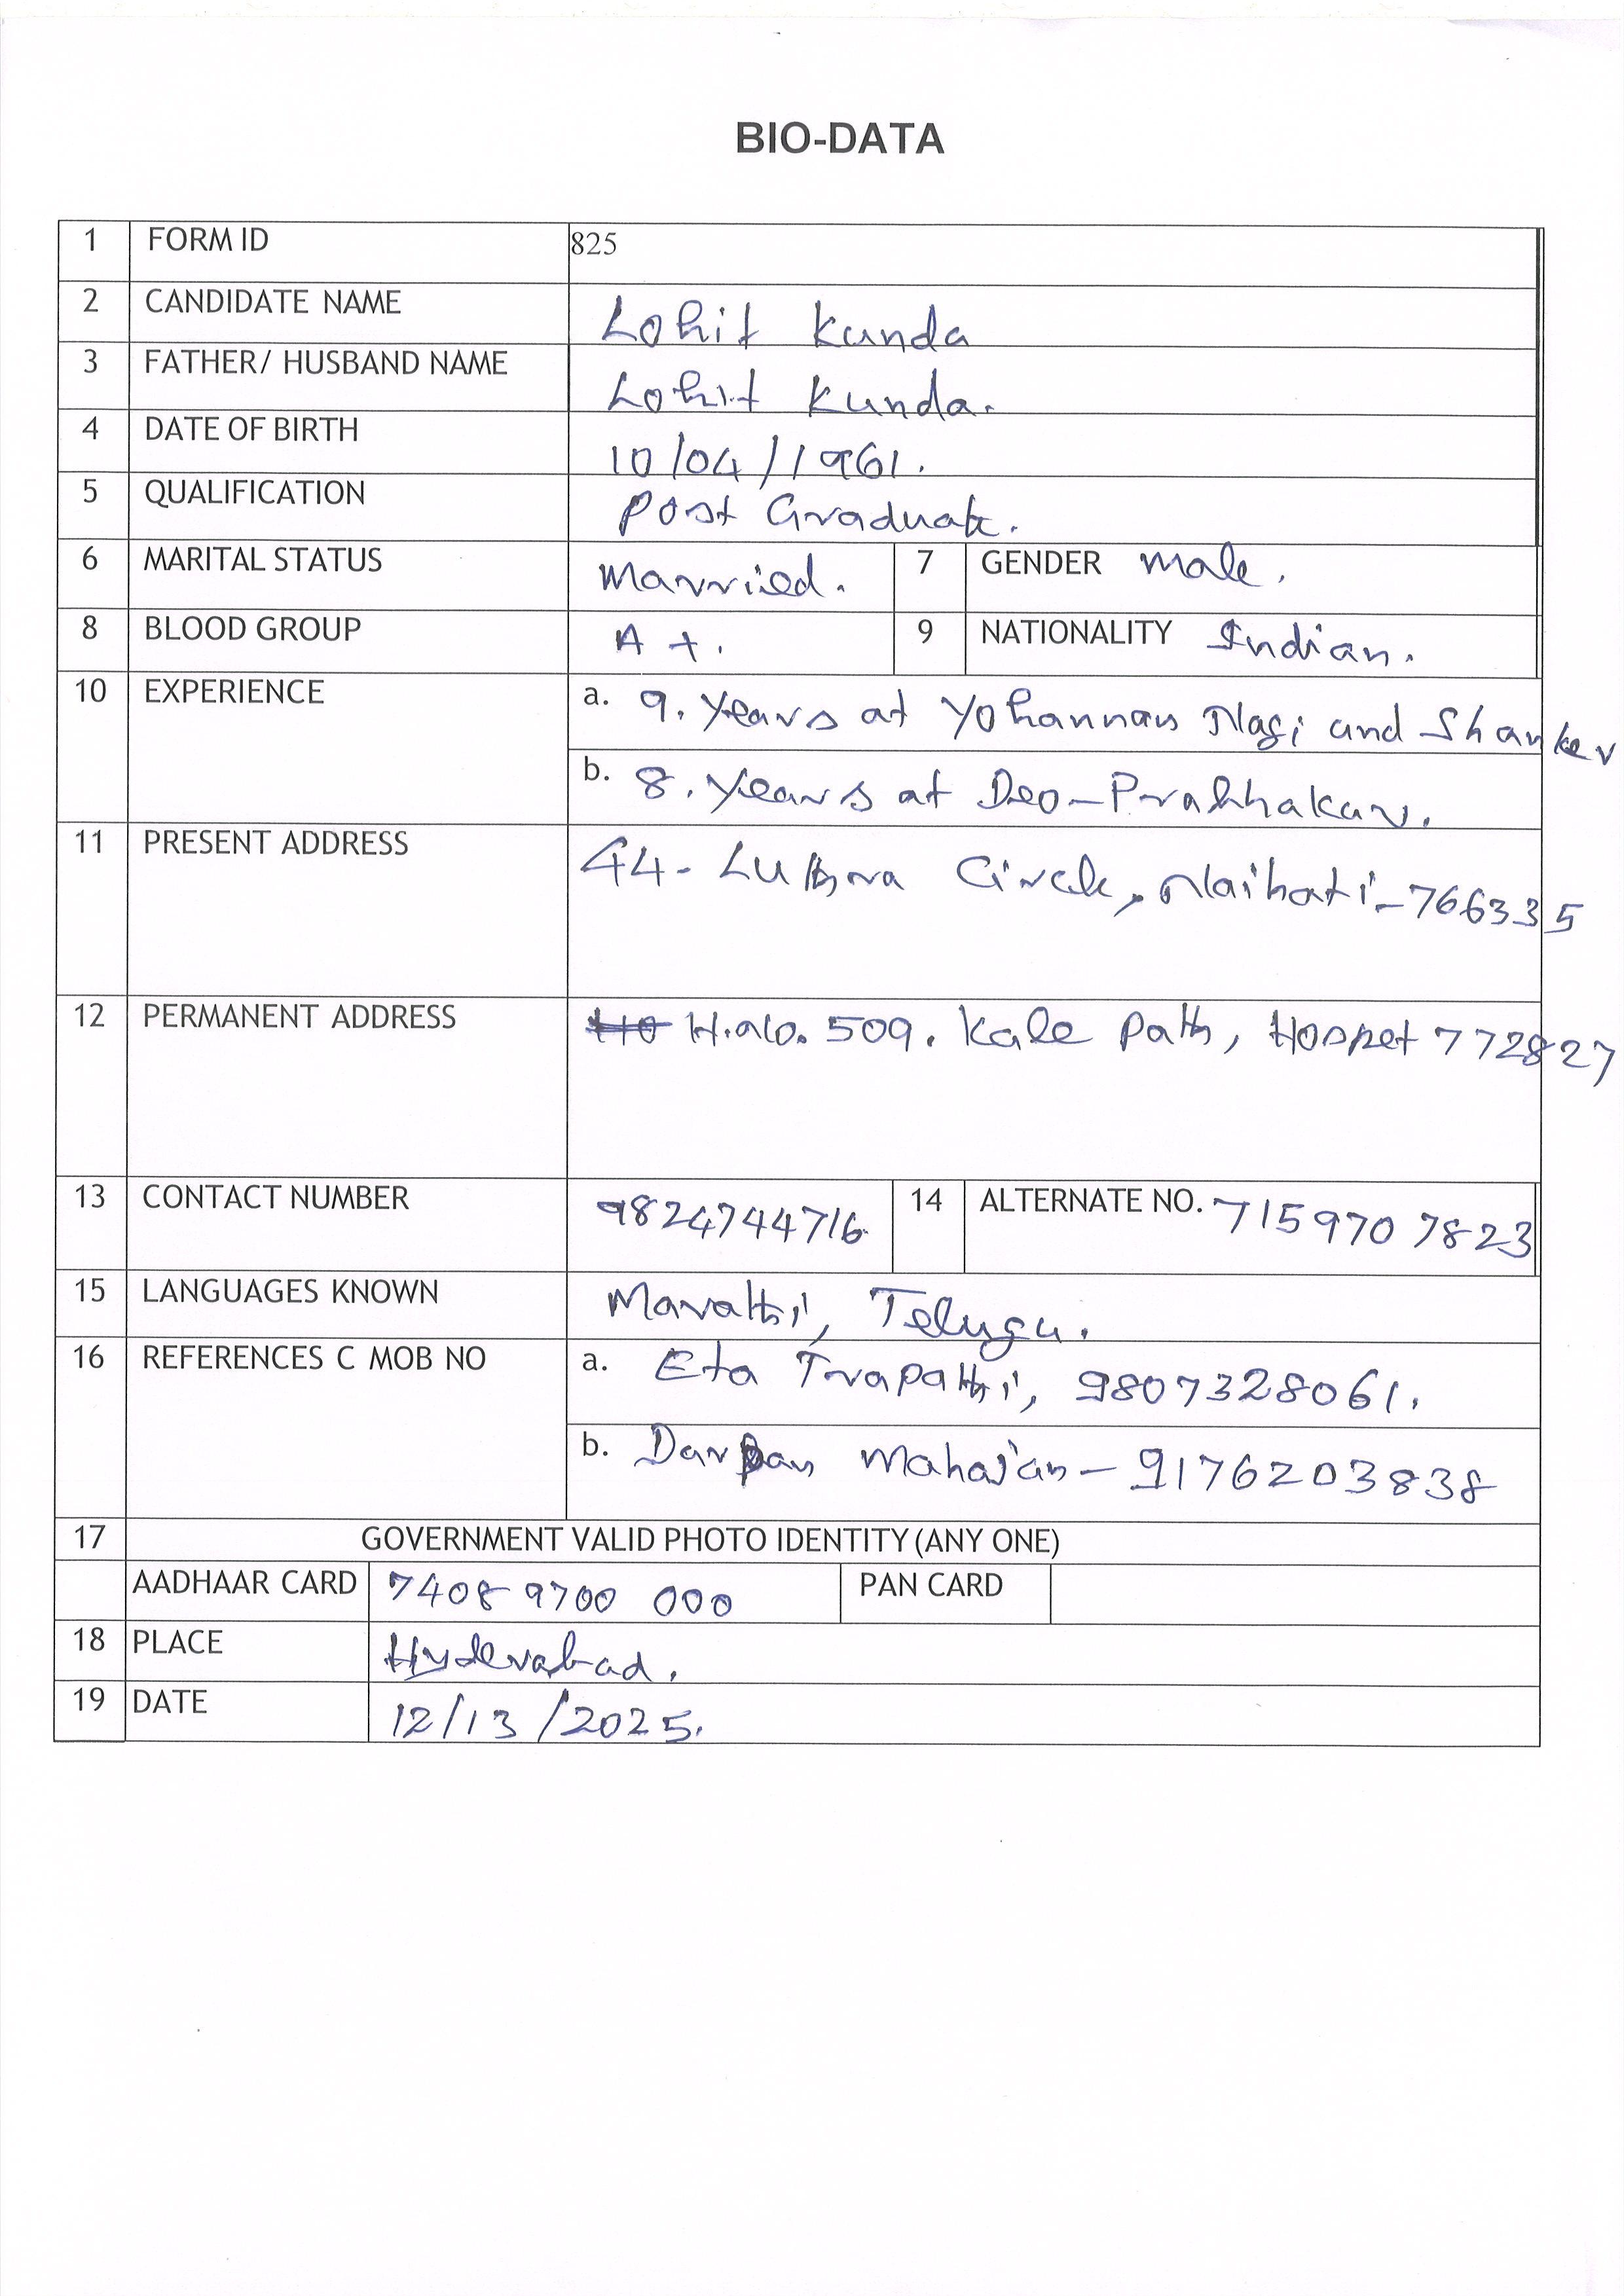 BIO-DATA
1 FORM ID 825
2 CANDIDATE NAME Lohit Kunda
3 FATHER/ HUSBAND NAME Lohit Kunda.
4 DATE OF BIRTH 10/04/1961.
5 QUALIFICATION Post Graduate.
6 MARITAL STATUS Married. 7 GENDER male.
8 BLOOD GROUP A+. 9 NATIONALITY Indian.
10 EXPERIENCE a. 9. Years at Yohannan Nagi and Shanker
b. 8. Years at Deo-Prabhakar.
11 PRESENT ADDRESS 44- Luthra Circle, Naihati-766335
12 PERMANENT ADDRESS H.No. 509. Kale Path, Hospet 772827
13 CONTACT NUMBER 9824744716 14 ALTERNATE NO. 7159707823
15 LANGUAGES KNOWN Marathi, Telugu.
16 REFERENCES C MOB NO a. Eta Trapathi, 9807328061.
b. Darpan Mahajan- 9176203838
17 GOVERNMENT VALID PHOTO IDENTITY (ANY ONE)
AADHAAR CARD 7408 9700 000 PAN CARD
18 PLACE Hyderabad.
19 DATE 12/13/2025.